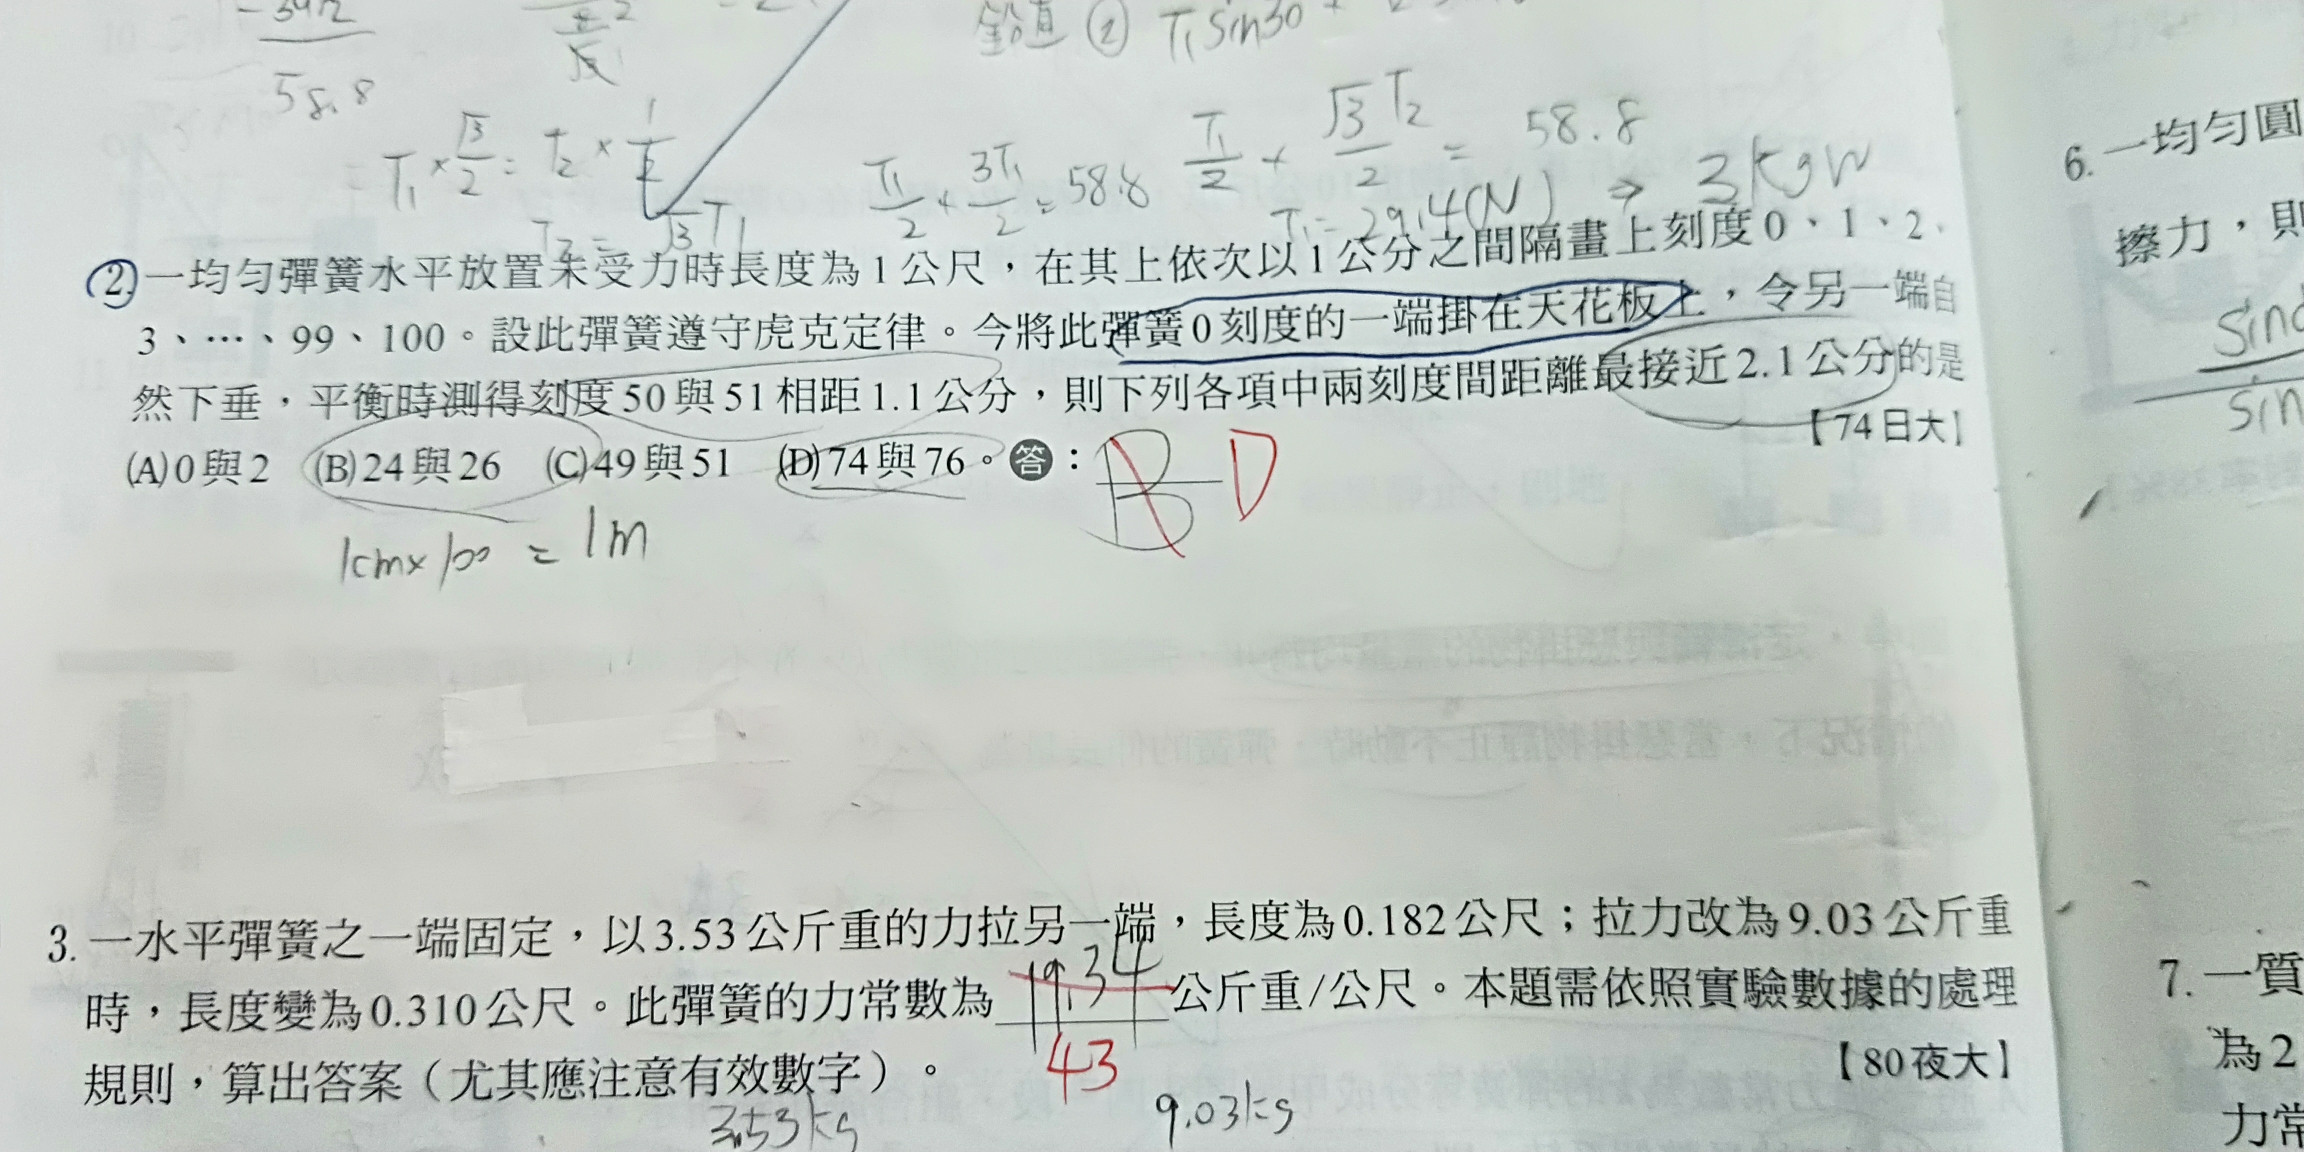 58.8
鉛直 ② T₁ sin30 +
T₁ × √3/2 = T₂ × 1/2
T₂ = √3 T₁
T₁/2 + 3T₁/2 = 58.8
T₁/2 + √3 T₂/2 = 58.8
T₁ = 29.4(N) ⇒ 3 kgw
2. 一均勻彈簧水平放置未受力時長度為1公尺，在其上依次以1公分之間隔畫上刻度0、1、2、
3、…、99、100。設此彈簧遵守虎克定律。今將此彈簧0刻度的一端掛在天花板上，令另一端自
然下垂，平衡時測得刻度50與51相距1.1公分，則下列各項中兩刻度間距離最接近2.1公分的是
【74日大】
(A)0與2 (B)24與26 (C)49與51 (D)74與76。答：B D
1cm×100 = 1m
3. 一水平彈簧之一端固定，以3.53公斤重的力拉另一端，長度為0.182公尺；拉力改為9.03公斤重
時，長度變為0.310公尺。此彈簧的力常數為19.34公斤重/公尺。本題需依照實驗數據的處理
43
規則，算出答案（尤其應注意有效數字）。【80夜大】
3.53kg 9.03kg
6. 一均勻圓
擦力，則
sin
7. 一質
為2
力常